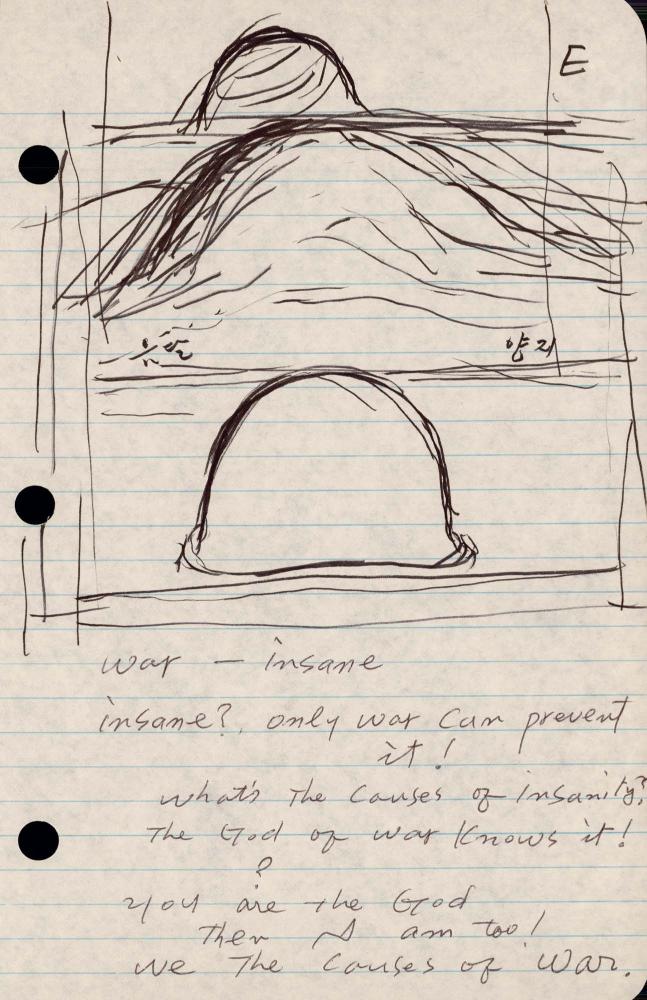 E
양지
war — insane
insane?. only war can prevent
it!
what's The Causes of insanity?
The God of war Knows it!
?
you are the God
Then I am too!
we The Causes of War.